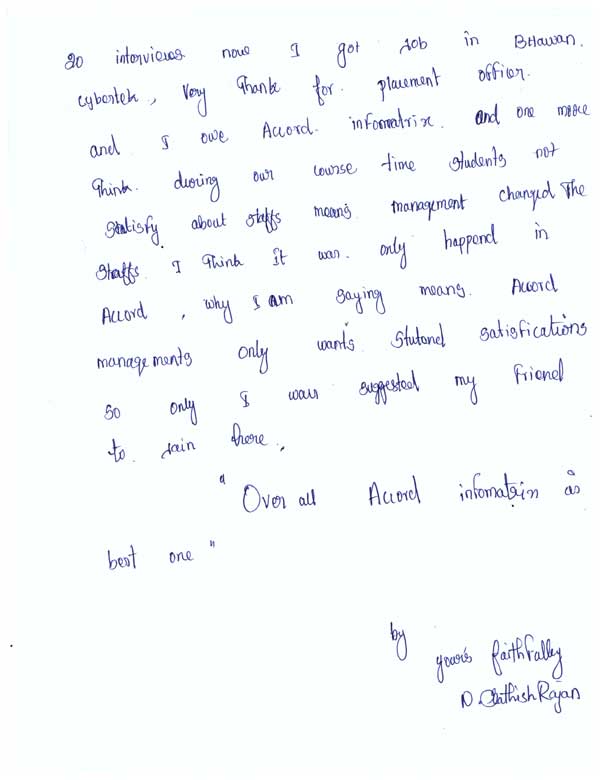 20 interviews now I got Job in BHawan.
Cybertek, Very Thank for. placement officer.
and I owe Accord. infomatrix. and one more
Think. during our course time students not
Satisfy about staffs means management changed The
Staffs. I Think it was. only happend in
Accord, why I am saying means. Accord
managements only wants Stutond satisfications
so only I was suggested my Friend
to. join there.,
" Over all Accord infomatrix is
best one "
by
yours faithfally
Rajan